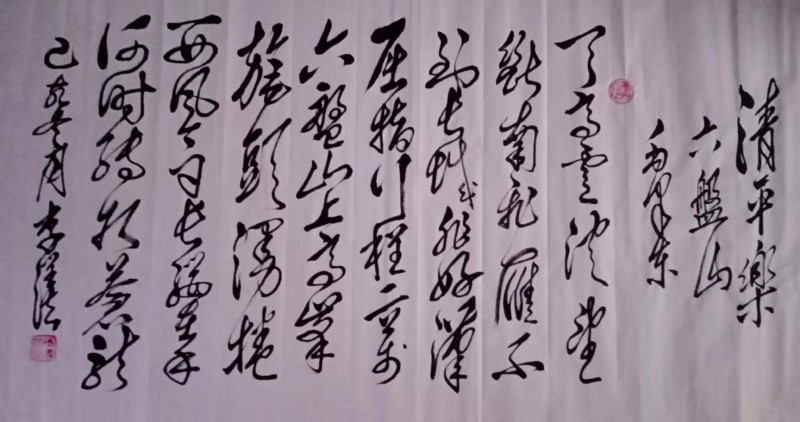 清平樂
六盤山
毛澤东
天高雲淡望
斷南飛雁不
到长城非好漢
屈指行程二萬
六盤山上高峯
旄頭漫捲
西風今日长纓在手
何时縛住蒼龍
己亥冬月李